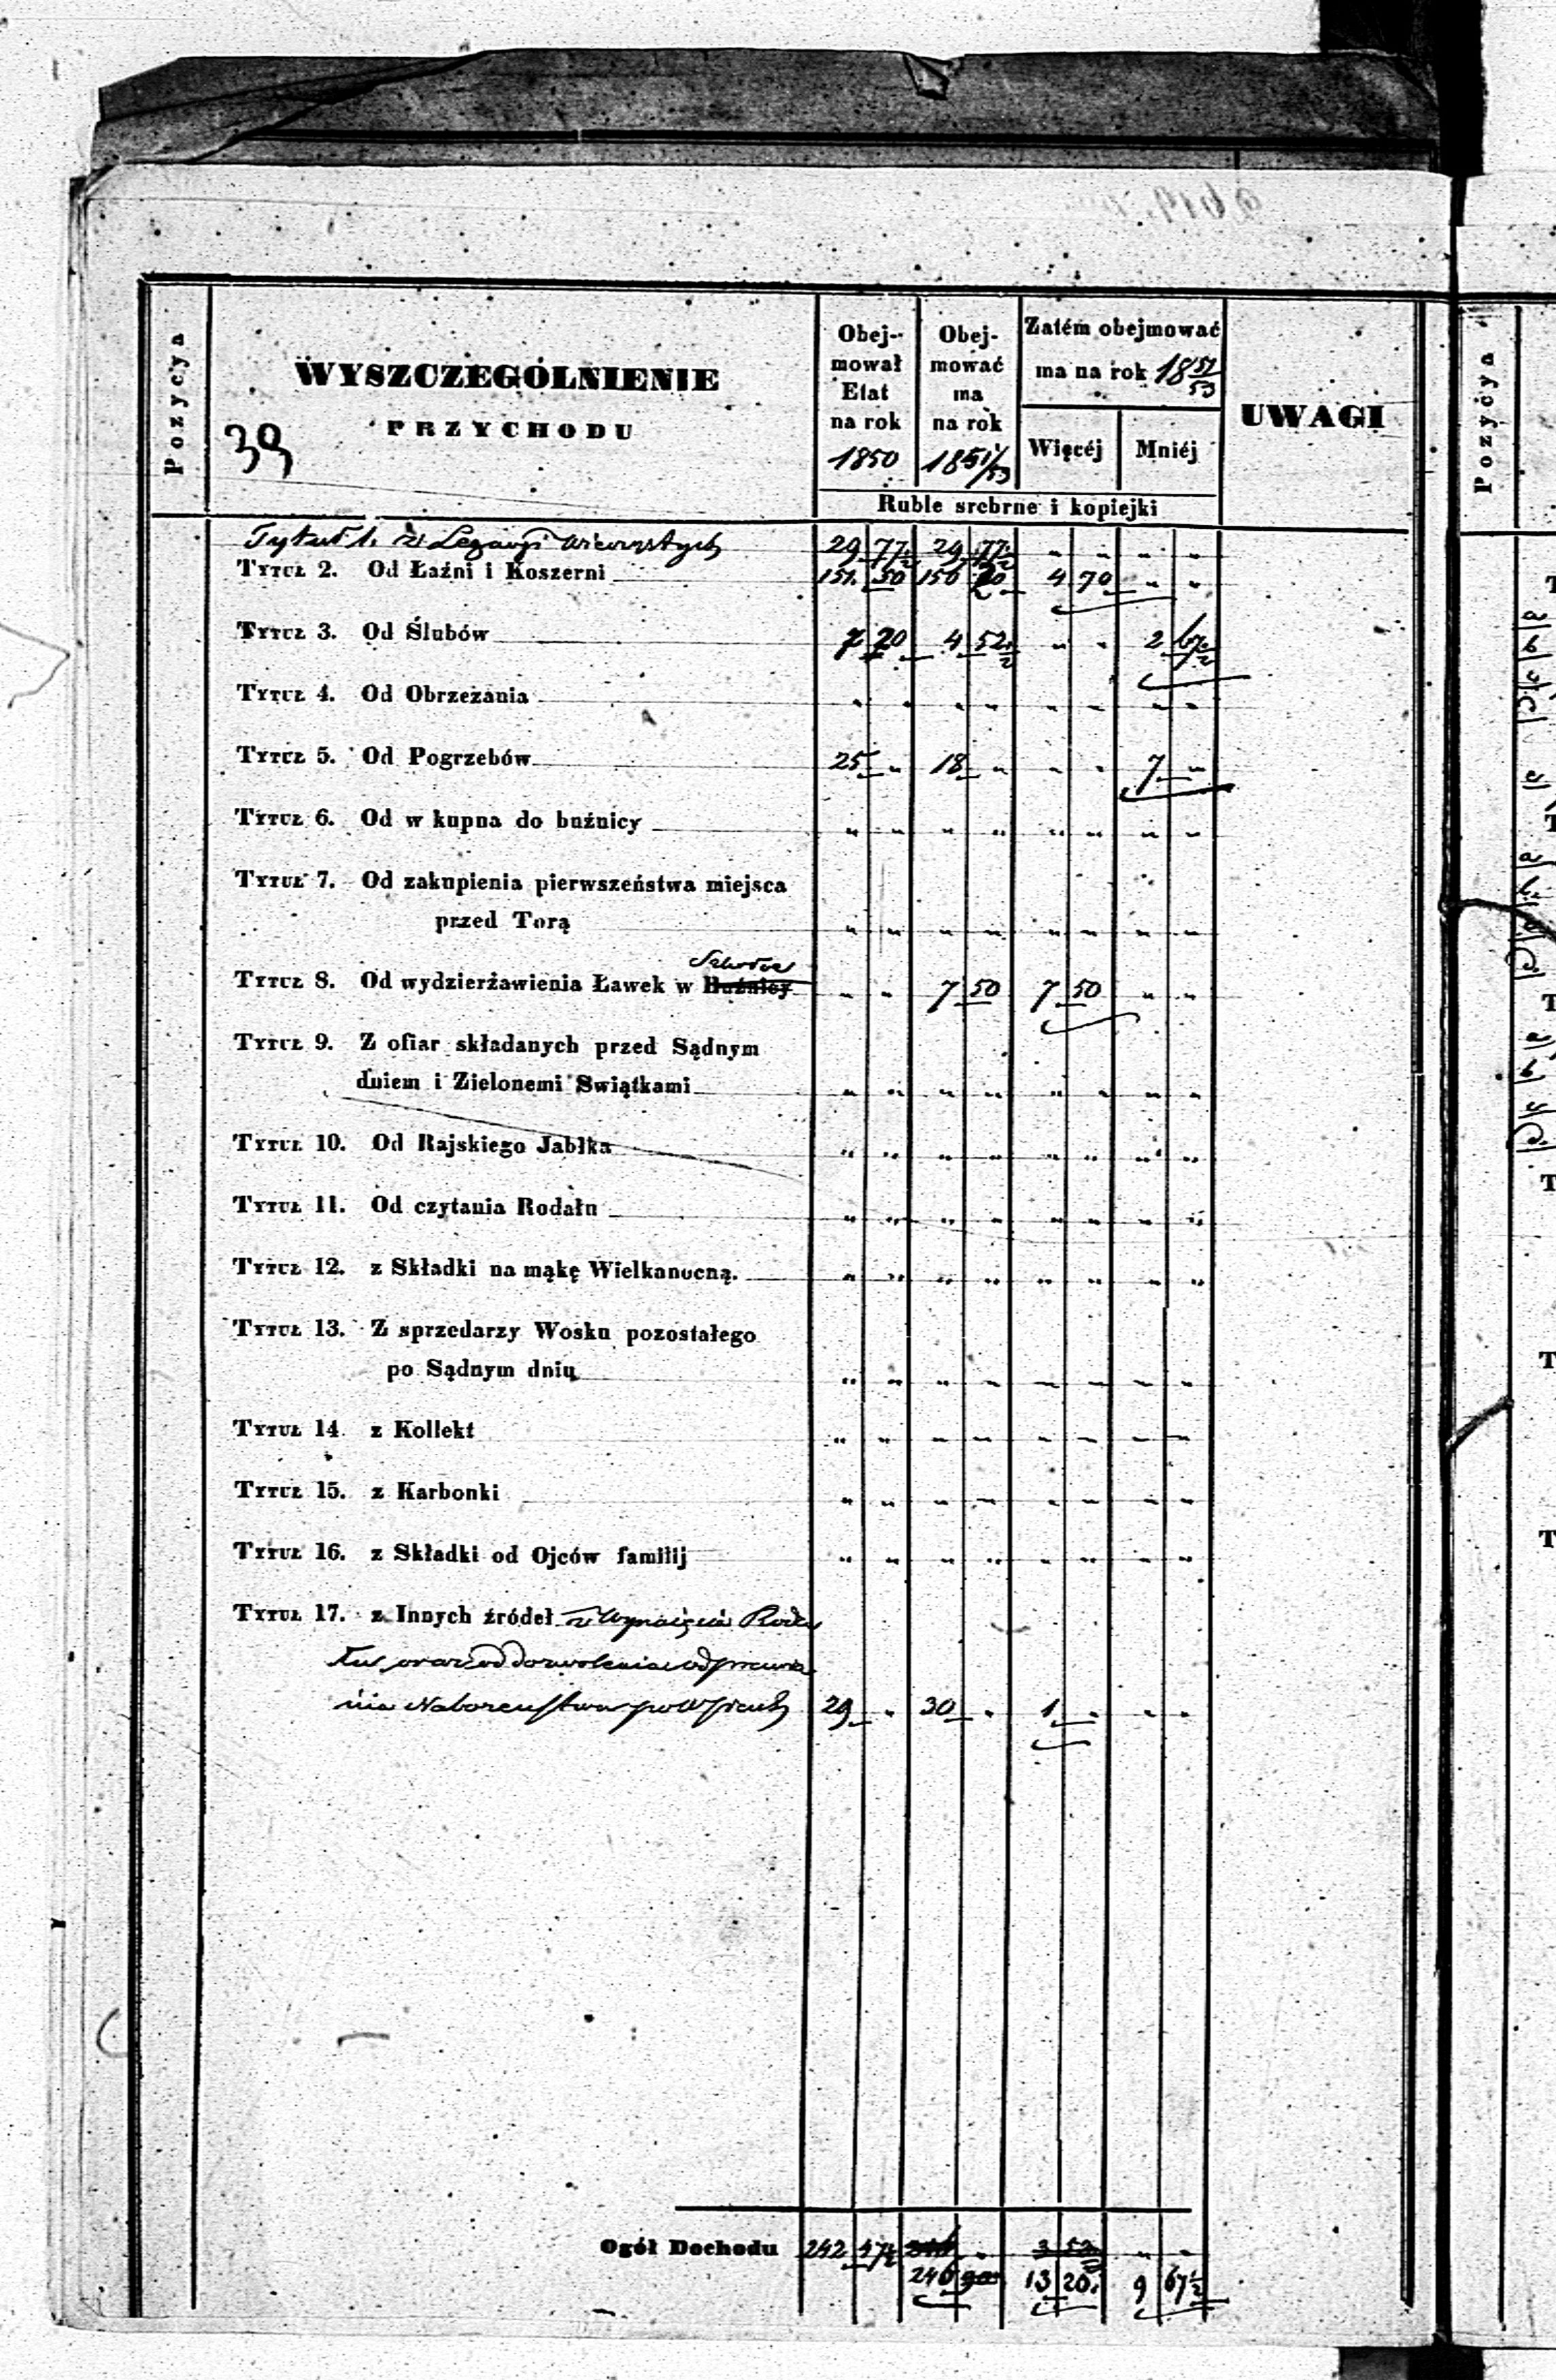 Pozycya
WYSZCZEGÓLNIENIE
PRZYCHODU
39
Obej-
mował
Etat
na rok
1850
Obej-
mować
ma
na rok
1851/53
Zatém obejmować
ma na rok 1851/53
Więcéj
Mniéj
UWAGI
Ruble srebrne i kopiejki
Tytuł 1. z Legacyi wieczystych 29 77½ 29 77½ " " " "
Tytuł 2. Od Łaźni i Koszerni 151. 50 156 20 4 70 " "
Tytuł 3. Od Ślubów 7 20 4 52½ " " 2 67½
Tytuł 4. Od Obrzezania " " " " " " " "
Tytuł 5. Od Pogrzebów 25 " 18 " " " 7 "
Tytuł 6. Od w kupna do buźnicy " " " " " " " "
Tytuł 7. Od zakupienia pierwszeństwa miejsca
przed Torą " " " " " " " "
Szkole
Tytuł 8. Od wydzierżawienia Ławek w Buźnicy " " 7 50 7 50 " "
Tytuł 9. Z ofiar składanych przed Sądnym
dniem i Zielonemi Swiątkami " " " " " " " "
Tytuł 10. Od Rajskiego Jabłka " " " " " " " "
Tytuł 11. Od czytania Rodału " " " " " " " "
Tytuł 12. z Składki na mąkę Wielkanocną. " " " " " " " "
Tytuł 13. Z sprzedarzy Wosku pozostałego
po Sądnym dniu " " " " " " " "
Tytuł 14 z Kollekt " " " " " " " "
Tytuł 15. z Karbonki " " " " " " " "
Tytuł 16. z Składki od Ojców familij " " " " " " " "
Tytuł 17. z Innych źródeł z Wynajęcia Roda
łu oraz od dozwolenia odprawia
nia Nabożeństwa po wsiach 29 " 30 " 1 " " "
Ogół Dochodu 242 47½ 246 " 3 52½ " "
246 13 20. 9 67½
Pozycya